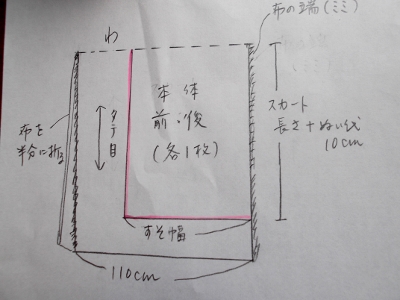 布の端(ミミ)
わ
本体
前・後
(各1枚)
タテ目
布を
半分に折る
スカート
長さ+ぬい代
10cm
すそ幅
110cm